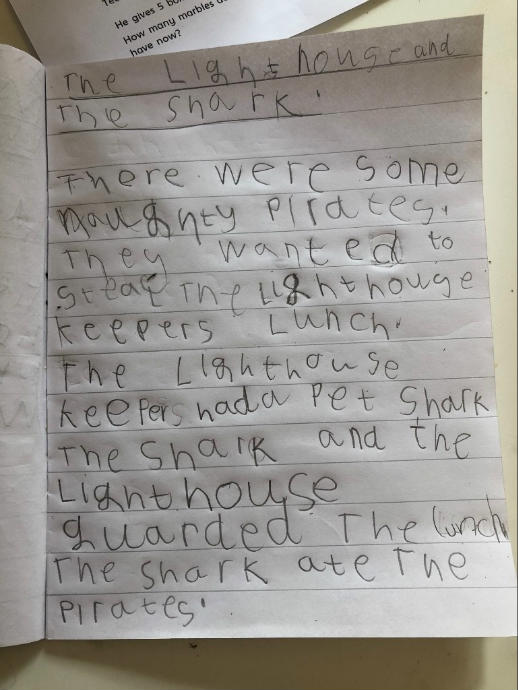 He gives 5
How many marbles
have now?
The Lighthouse and
The shark.
There were some
naughty pirates.
They wanted to
steal The Lighthouse
keepers Lunch.
The Lighthouse
keepers had a Pet Shark
The Shark and the
Lighthouse
guarded The lunch
The shark ate The
Pirates.